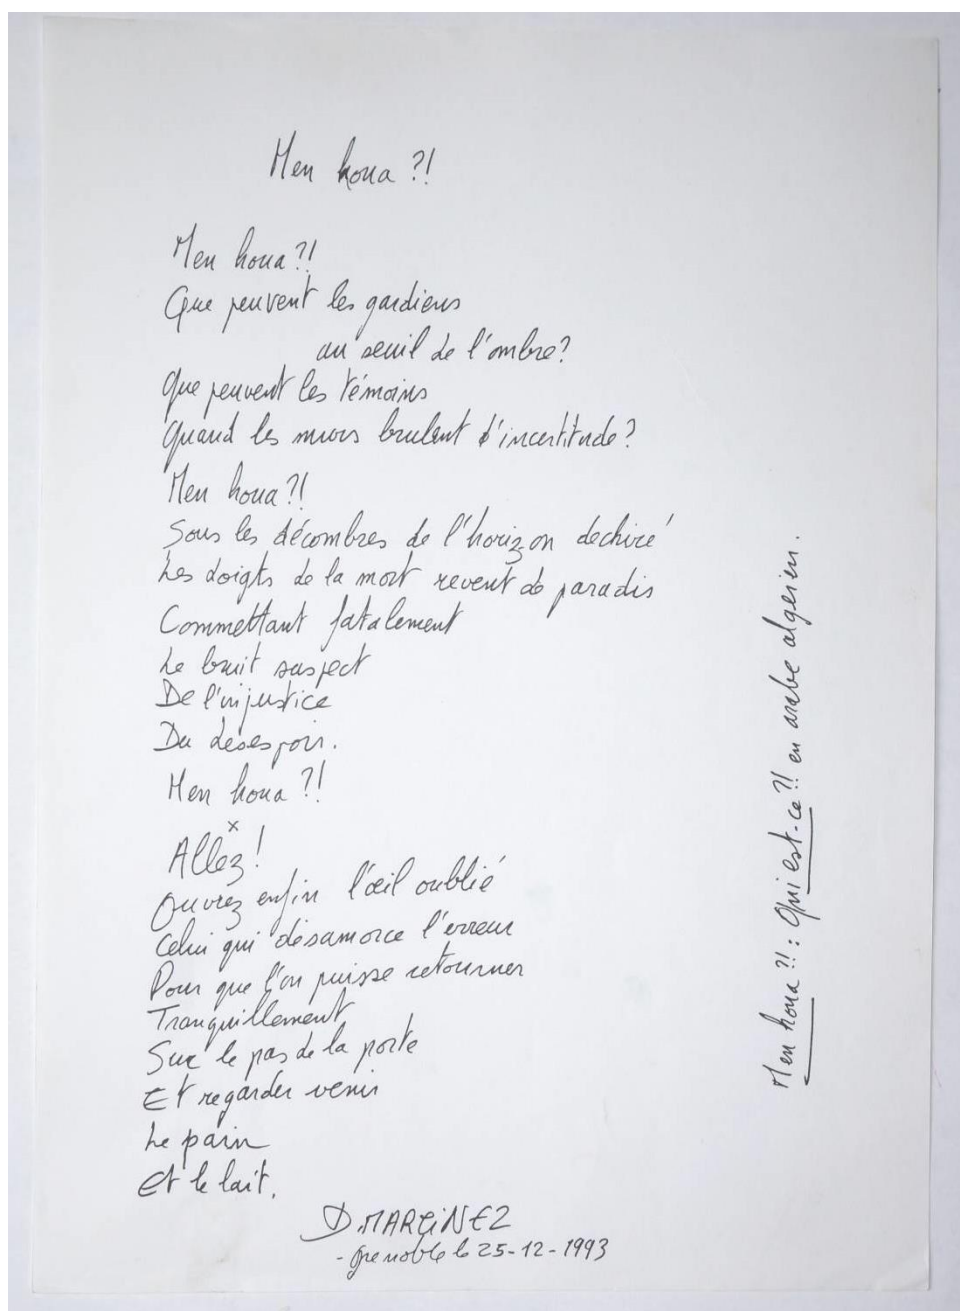 Men houa ?!
Men houa ?!
Que peuvent les gardiens
au seuil de l'ombre ?
Que peuvent les témoins
Quand les murs brulent d'incertitude ?
Men houa ?!
Sous les décombres de l'horizon dechiré
Les doigts de la mort revent de paradis
Commettant fatalement
Le bruit suspect
De l'injustice
Du desespoir.
Men houa ?!
Allez !
x
Ouvrez enfin l'œil oublié
Celui qui désamorce l'erreur
Pour que l'on puisse retourner
Tranquillement
Sur le pas de la porte
Et regarder venir
Le pain
Et le lait.
D. MARTiNEZ
- Grenoble le 25-12-1993
Men houa ?! : Qui est-ce ?! en arabe algerien.